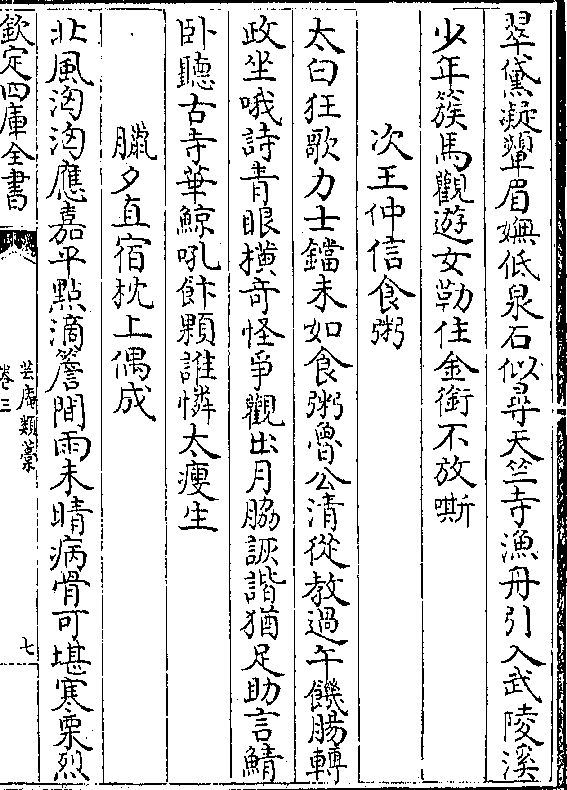 翠黛凝顰眉嫵低泉石似尋天竺寺漁舟引入武陵溪
少年簇馬觀遊女勒住金銜不放嘶
次王仲信食粥
太白狂歌力士鐺未如食粥魯公清從教過午饑腸轉
政坐哦詩青眼横奇怪爭觀出月脇詼諧猶足助言鯖
卧聽古寺華鯨吼飰顆誰憐太瘦生
臘夕直宿枕上偶成
北風洶洶應嘉平點滴簷間雨未晴病骨可堪寒栗烈
欽定四庫全書
芸庵類藁
卷三
七